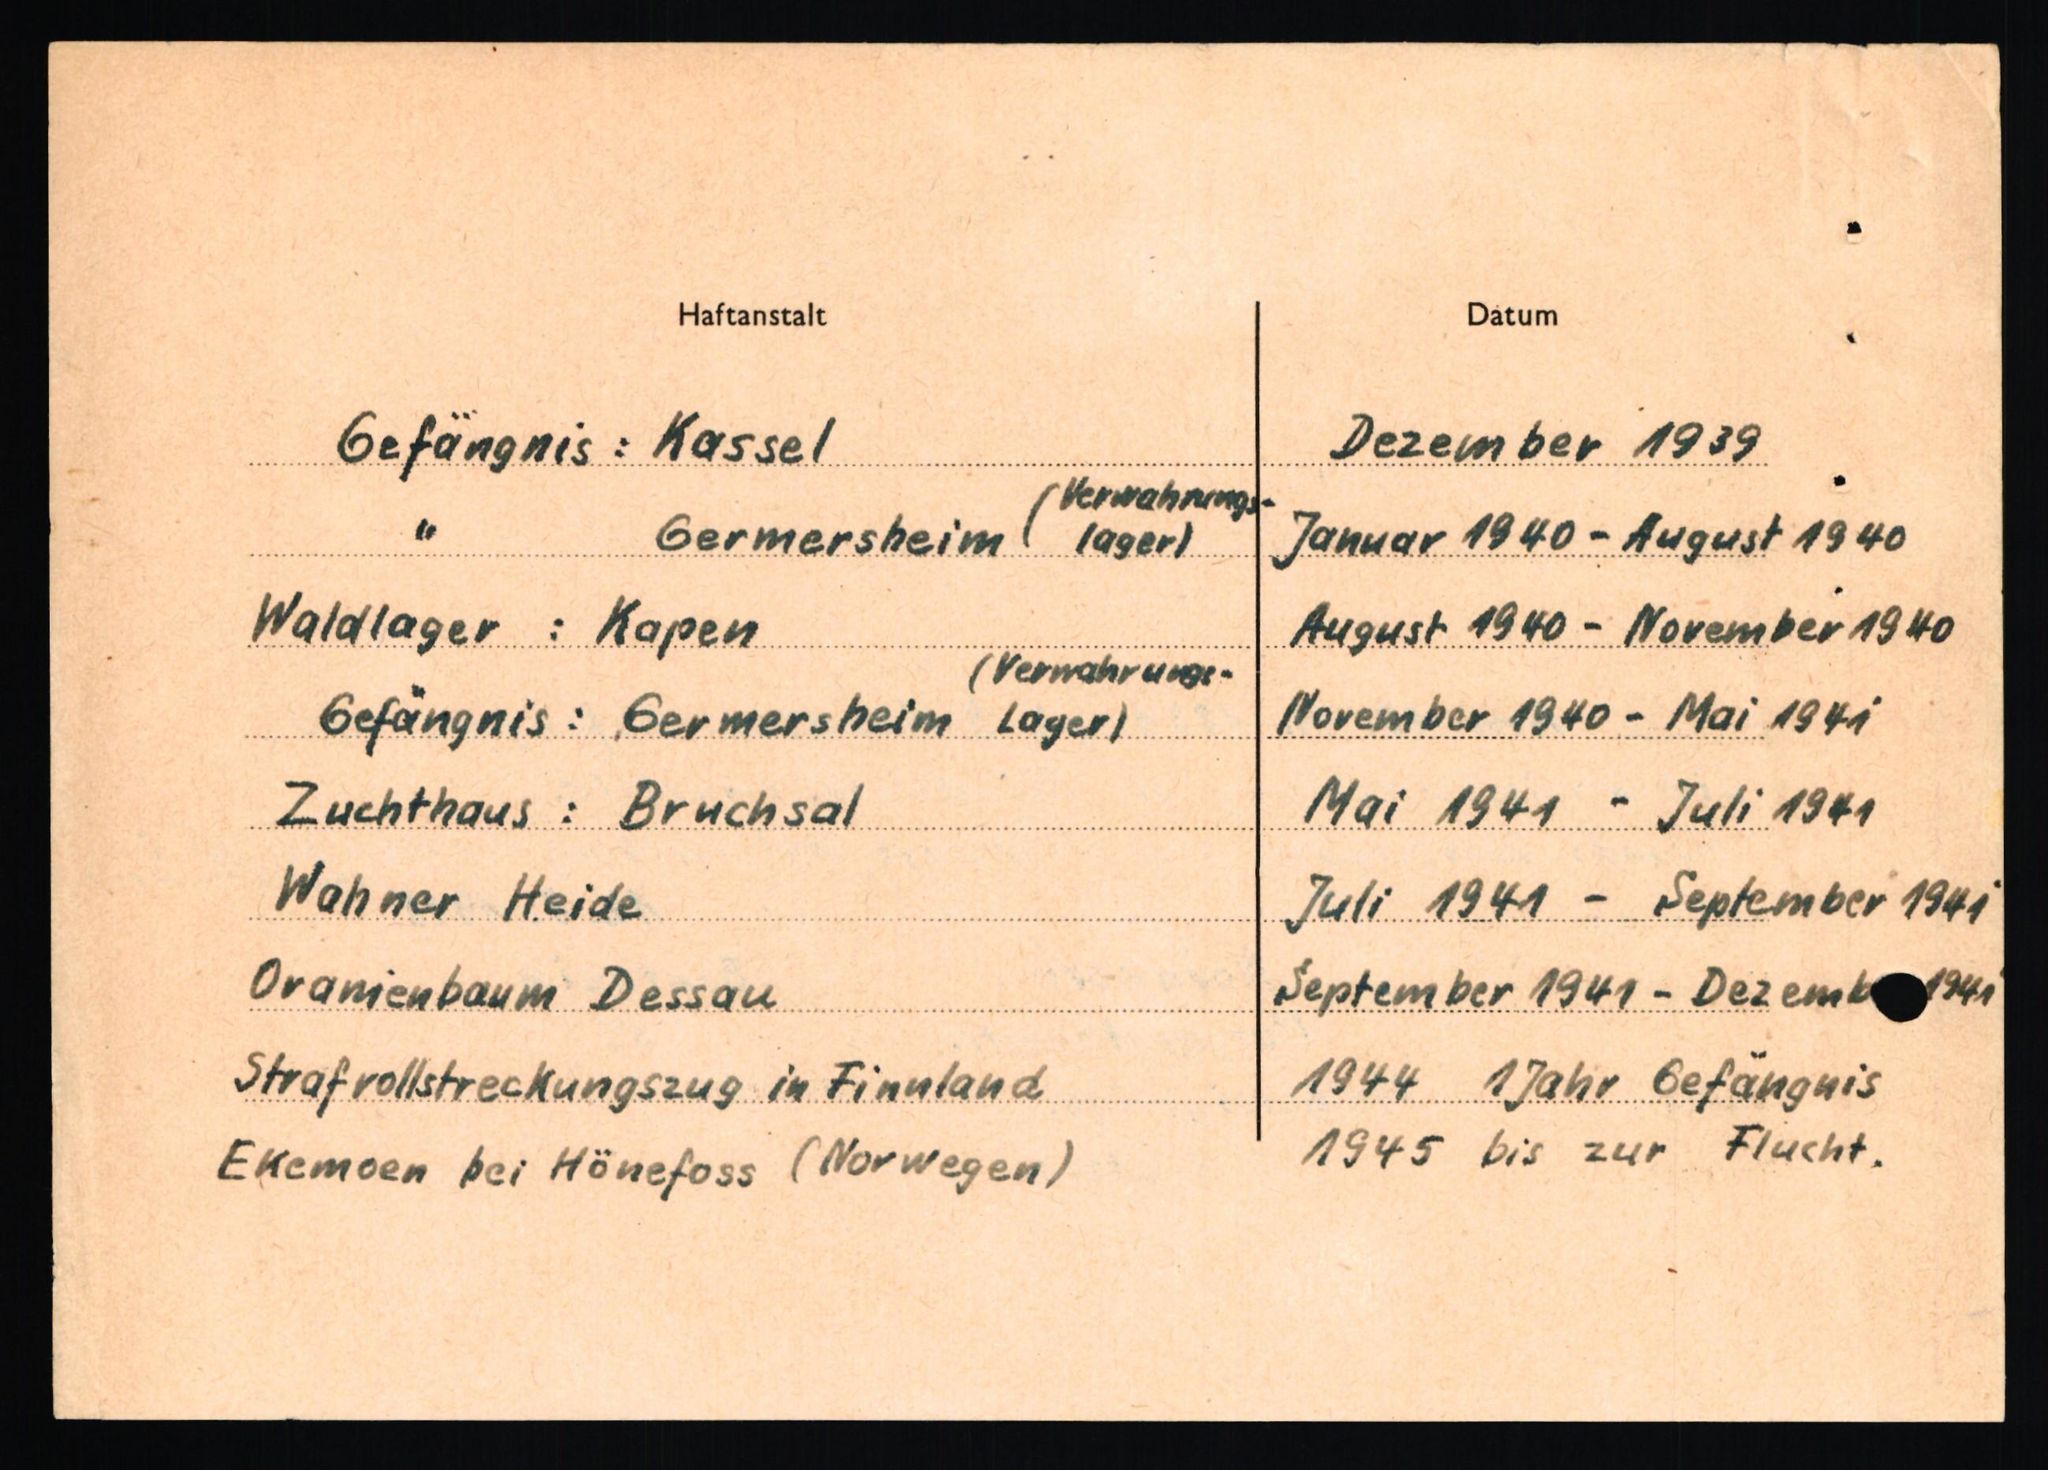 Haftanstalt Datum
Gefängnis: Kassel Dezember 1939
(Verwahrungs-
" Germersheim lager) Januar 1940 - August 1940
Waldlager : Kapen August 1940 - November 1940
(Verwahrungs-
Gefängnis: Germersheim lager) November 1940 - Mai 1941
Zuchthaus: Bruchsal Mai 1941 - Juli 1941
Wahner Heide Juli 1941 - September 1941
Oranienbaum Dessau September 1941 - Dezemb 1941
Strafvollstreckungszug in Finnland 1944 1 Jahr Gefängnis
Ekemoen bei Hönefoss (Norwegen) 1945 bis zur Flucht.